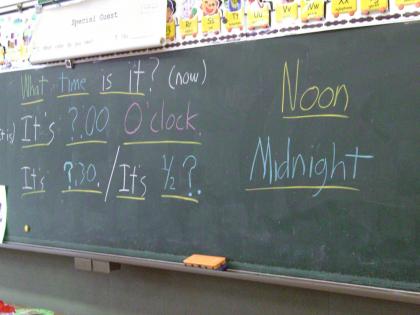 Special Guest
Tt Uu Vv Ww Xx Yy Zz
What time is it? (now)
It's ?:00 O'clock.
It's ?:30. / It's ½ ?.
Noon
Midnight